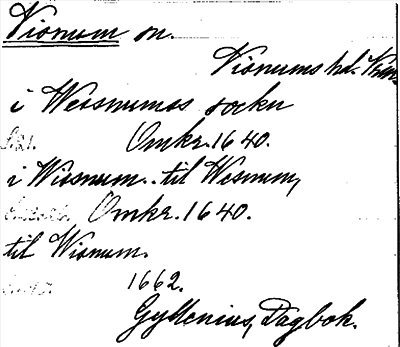 Visnum sn.
Visnums hd.
i Wessnumss sockn
Omkr. 1640.
i Wissnum.. til Wesnum,
Omkr. 1640.
til Wisnum.
1662.
Gyllenius, Dagbok.